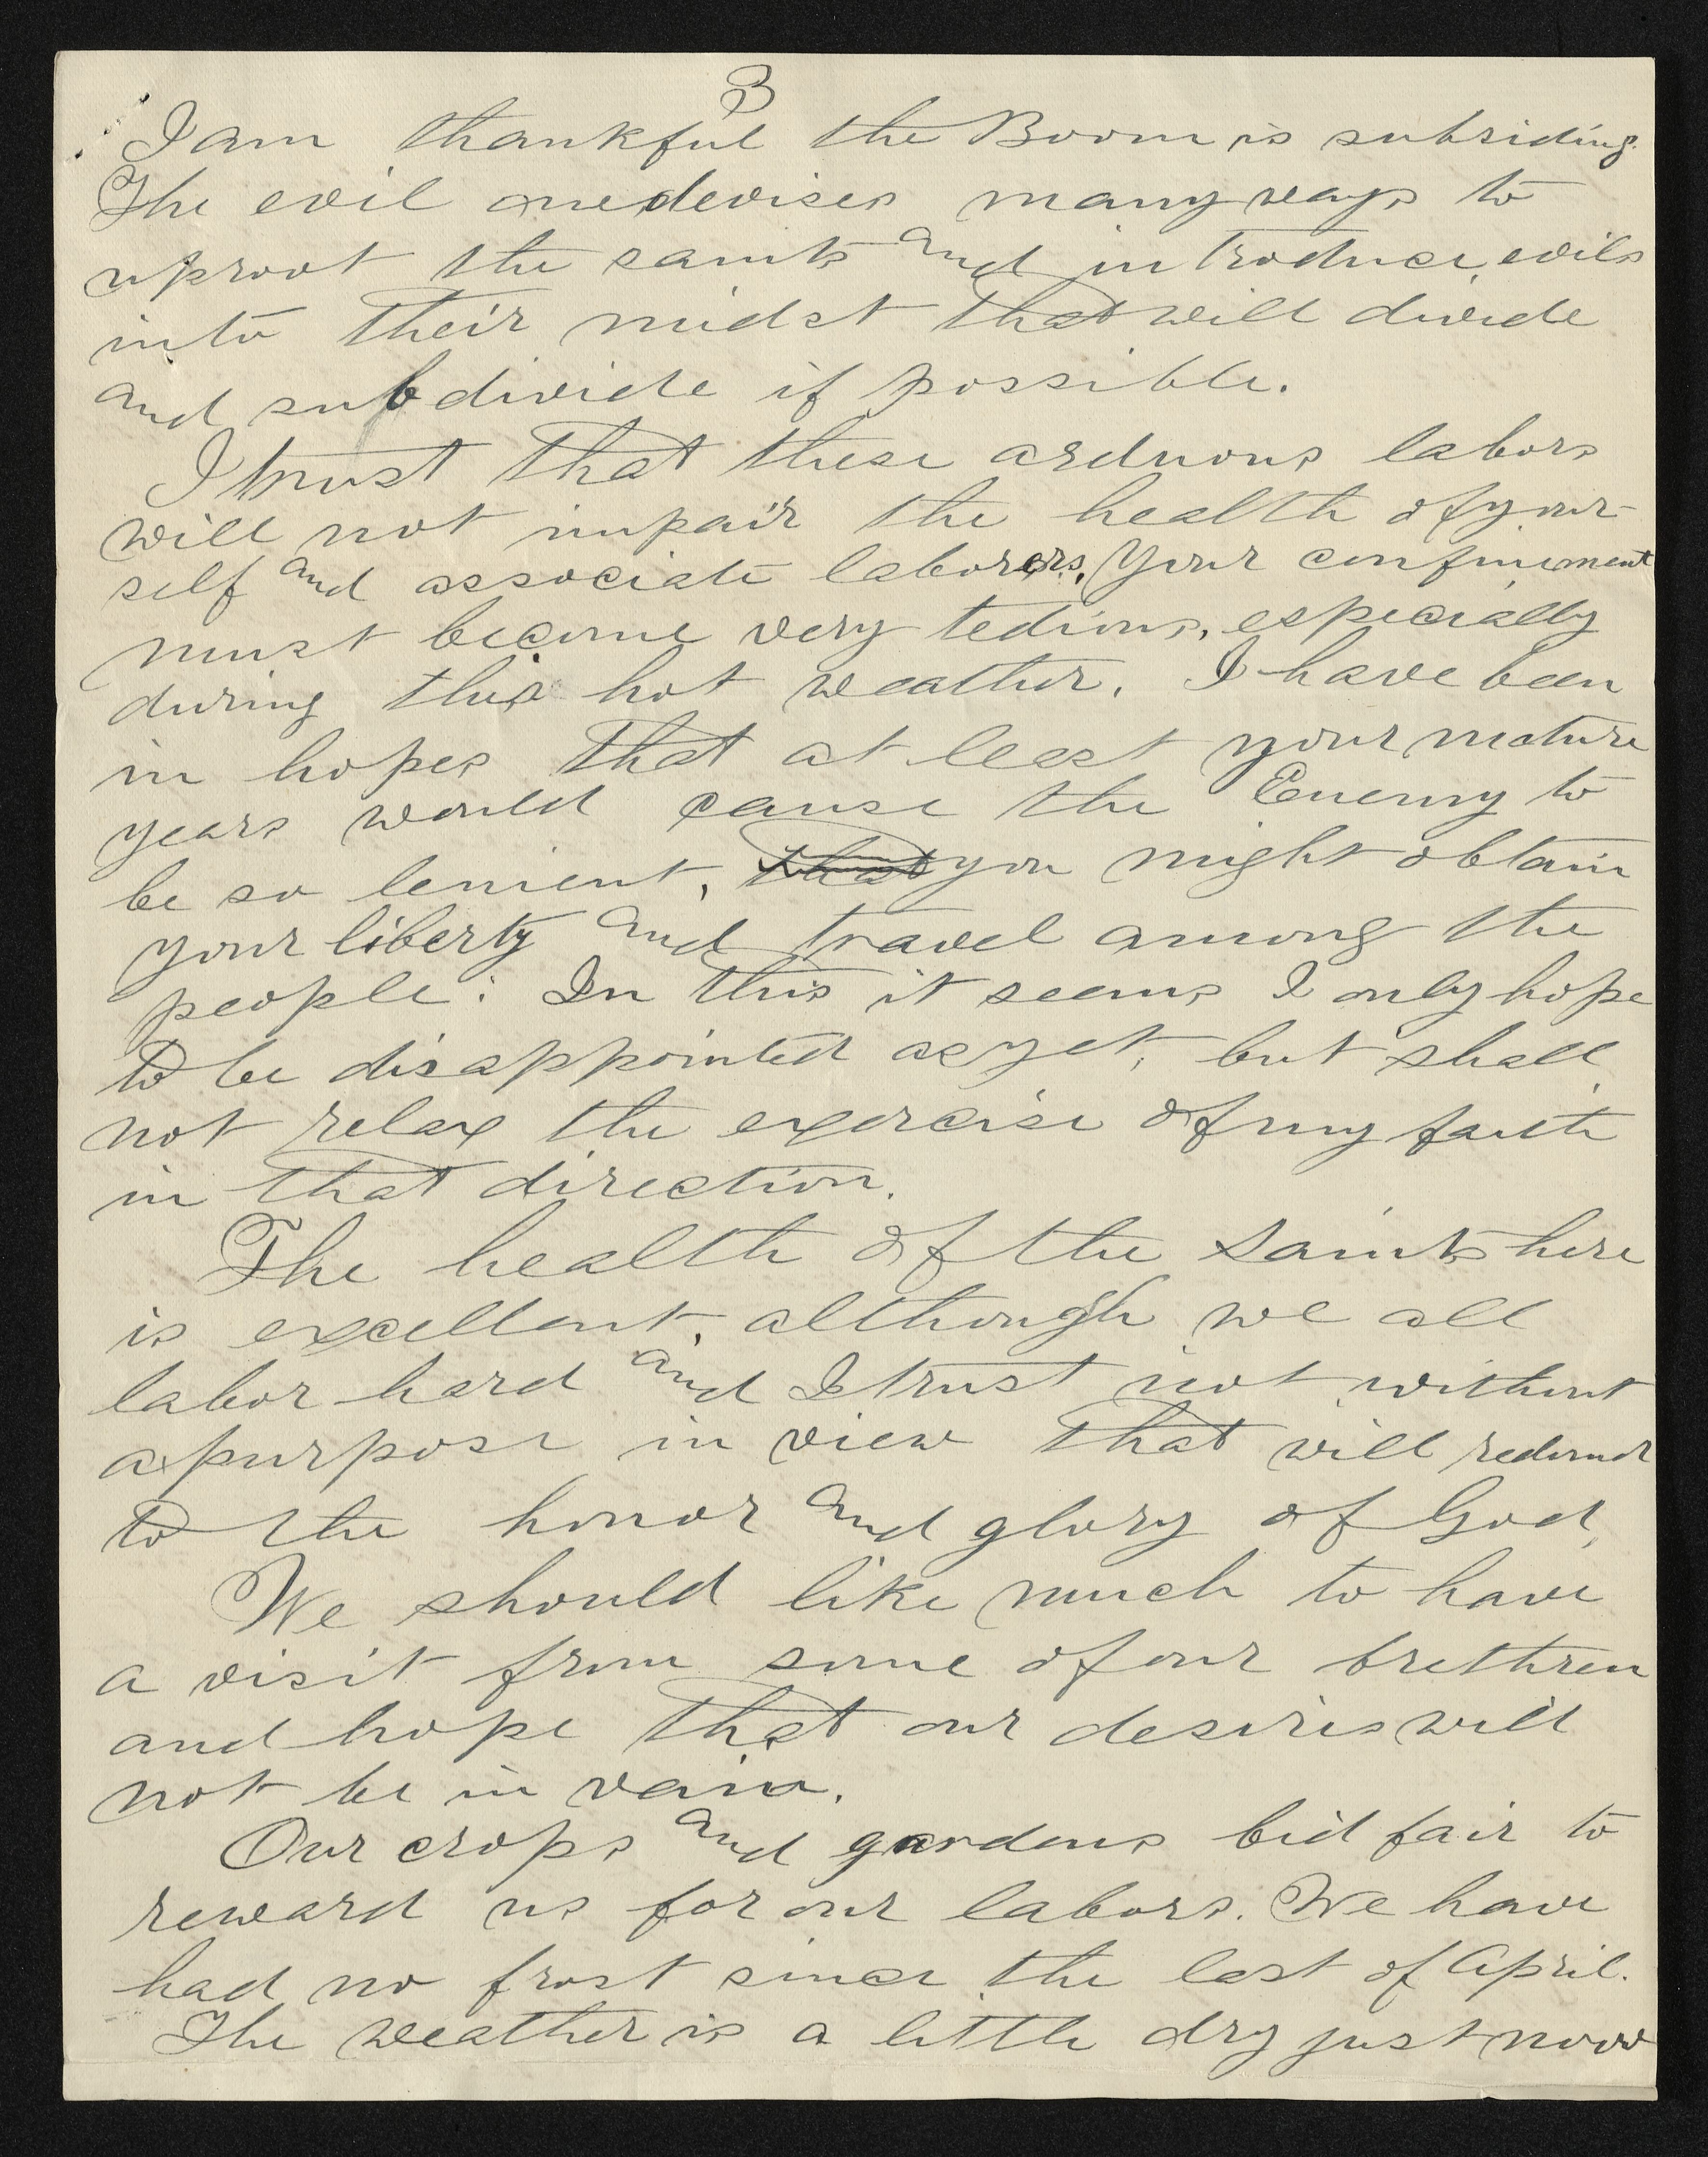 3
I am thankful the Boom is subsiding.
The evil one devises many ways to
uproot the saints and introduce evils
into their midst that will divide
and subdivide if possible.
I trust that these arduous labors
will not impair the health of your-
self and associate laborers. Your confinement
must become very tedious, especially
during this hot weather. I have been
in hopes that at least your mature
years would cause the Enemy to
be so lenient, that you might obtain
your liberty and travel among the
people: In this it seems I only hope
to be disappointed as yet, but shall
not relax the exercise of my faith
in that direction.
The health of the Saints here
is excellent, although we all
labor hard and I trust not without
a purpose in view that will redound
to the honor and glory of God,
We should like much to have
a visit from some of our brethren
and hope that our desires will
not be in vain.
Our crops and gardens bid fair to
reward us for our labors. We have
had no frost since the last of April.
The weather is a little dry just now